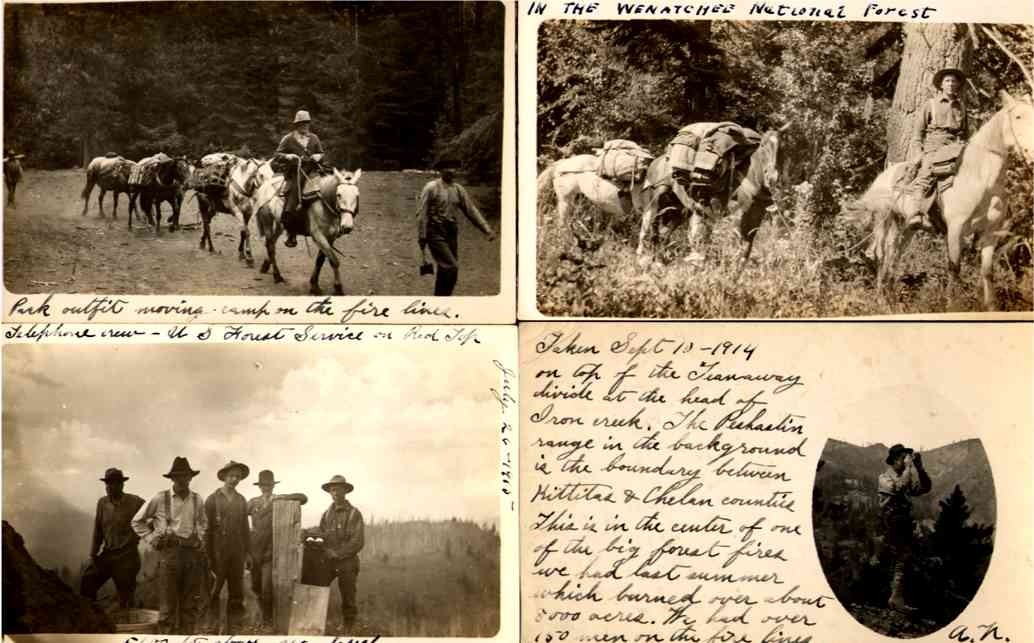 IN THE WENATCHEE National Forest
Pack outfit moving camp on the fire lines.
Telephone crew - U S Forest Service on Red Top
July 26
Taken Sept 10-1914
on top of the Teanaway
divide at the head of
Iron creek. The Peshastin
range in the background
is the boundary between
Kittitas & Chelan counties
This is in the center of one
of the big forest fires
we had last summer
which burned over about
5000 acres. We had over
150 men on the fire lines